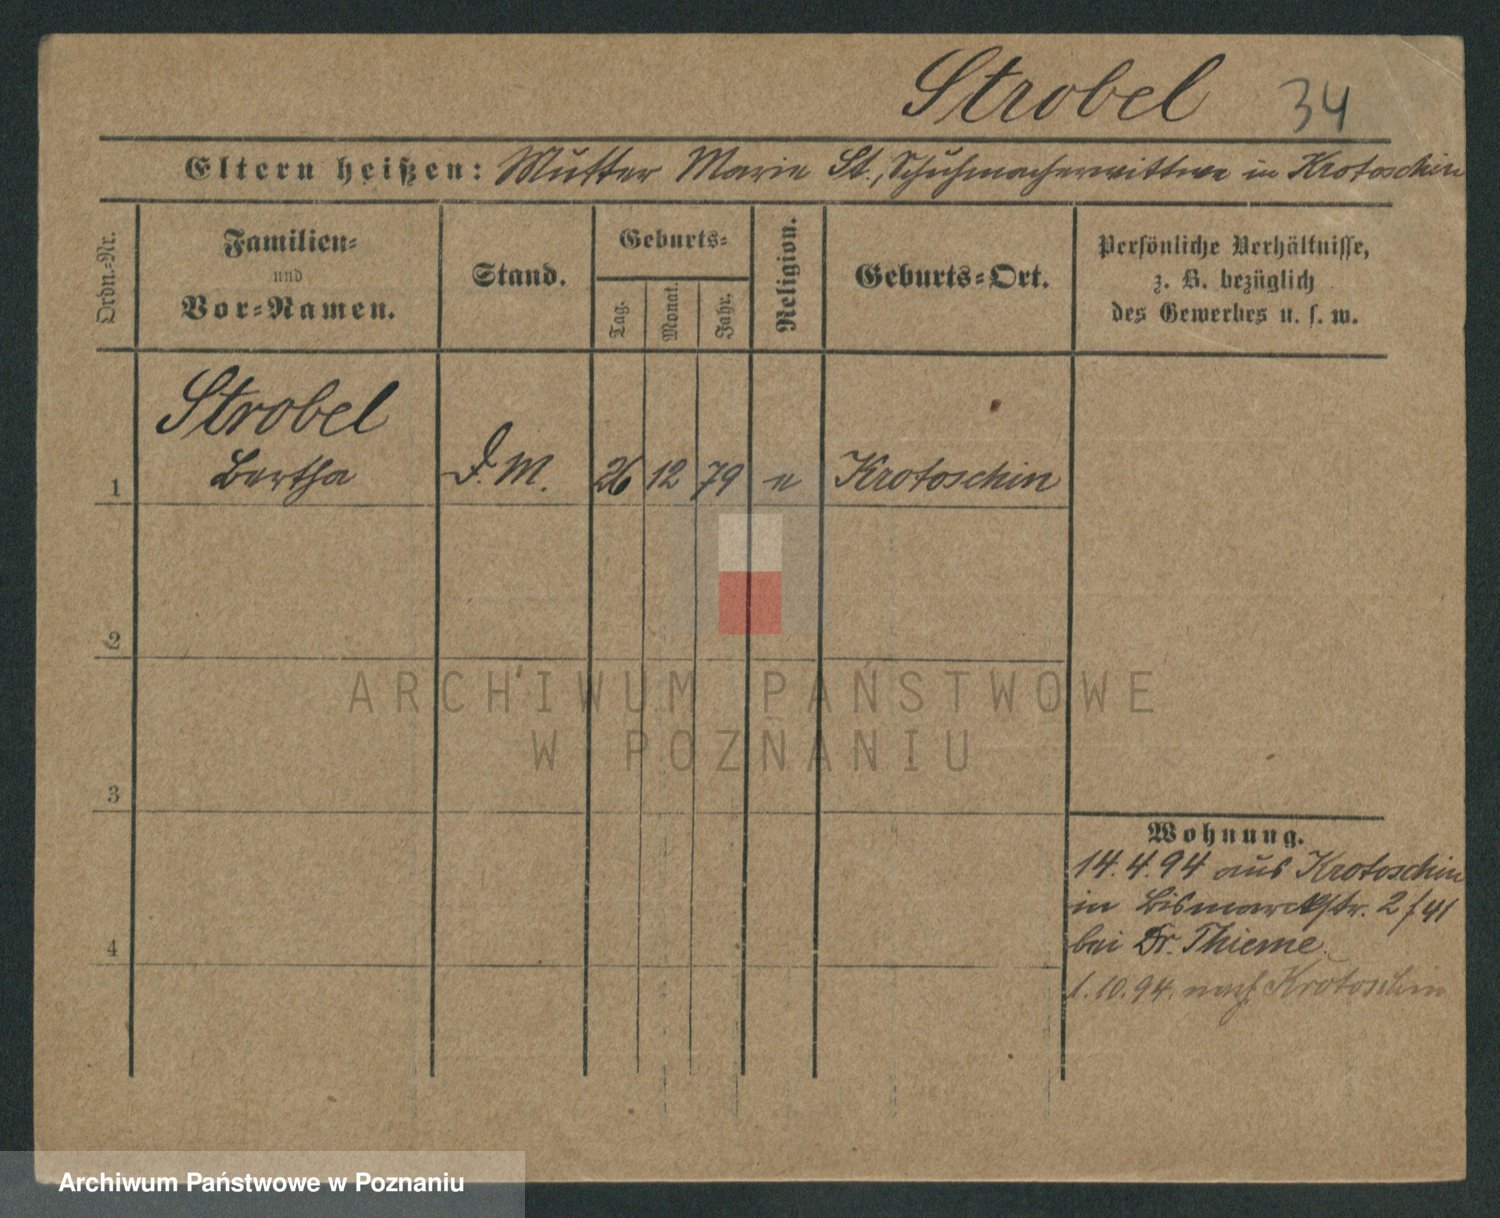 Strobel 34
Eltern heißen: Mutter Marie St., Schuhmacherwittwe in Krotoschin
Ordn.-Nr.
Familien-
und
Vor-Namen.
Stand.
Geburts-
Tag. Monat. Jahr.
Religion.
Geburts-Ort.
Persönliche Verhältnisse,
z. B. bezüglich
des Gewerbes u. s. w.
Strobel
1 Bertha D. M. 26 12 79 e Krotoschin
2
3
4
ARCHIWUM PAŃSTWOWE
W POZNANIU
Wohnung.
14.4.94 aus Krotoschin
in Bismarckstr. 2 f 41
bei Dr. Thieme.
1.10.94. nach Krotoschin
Archiwum Państwowe w Poznaniu